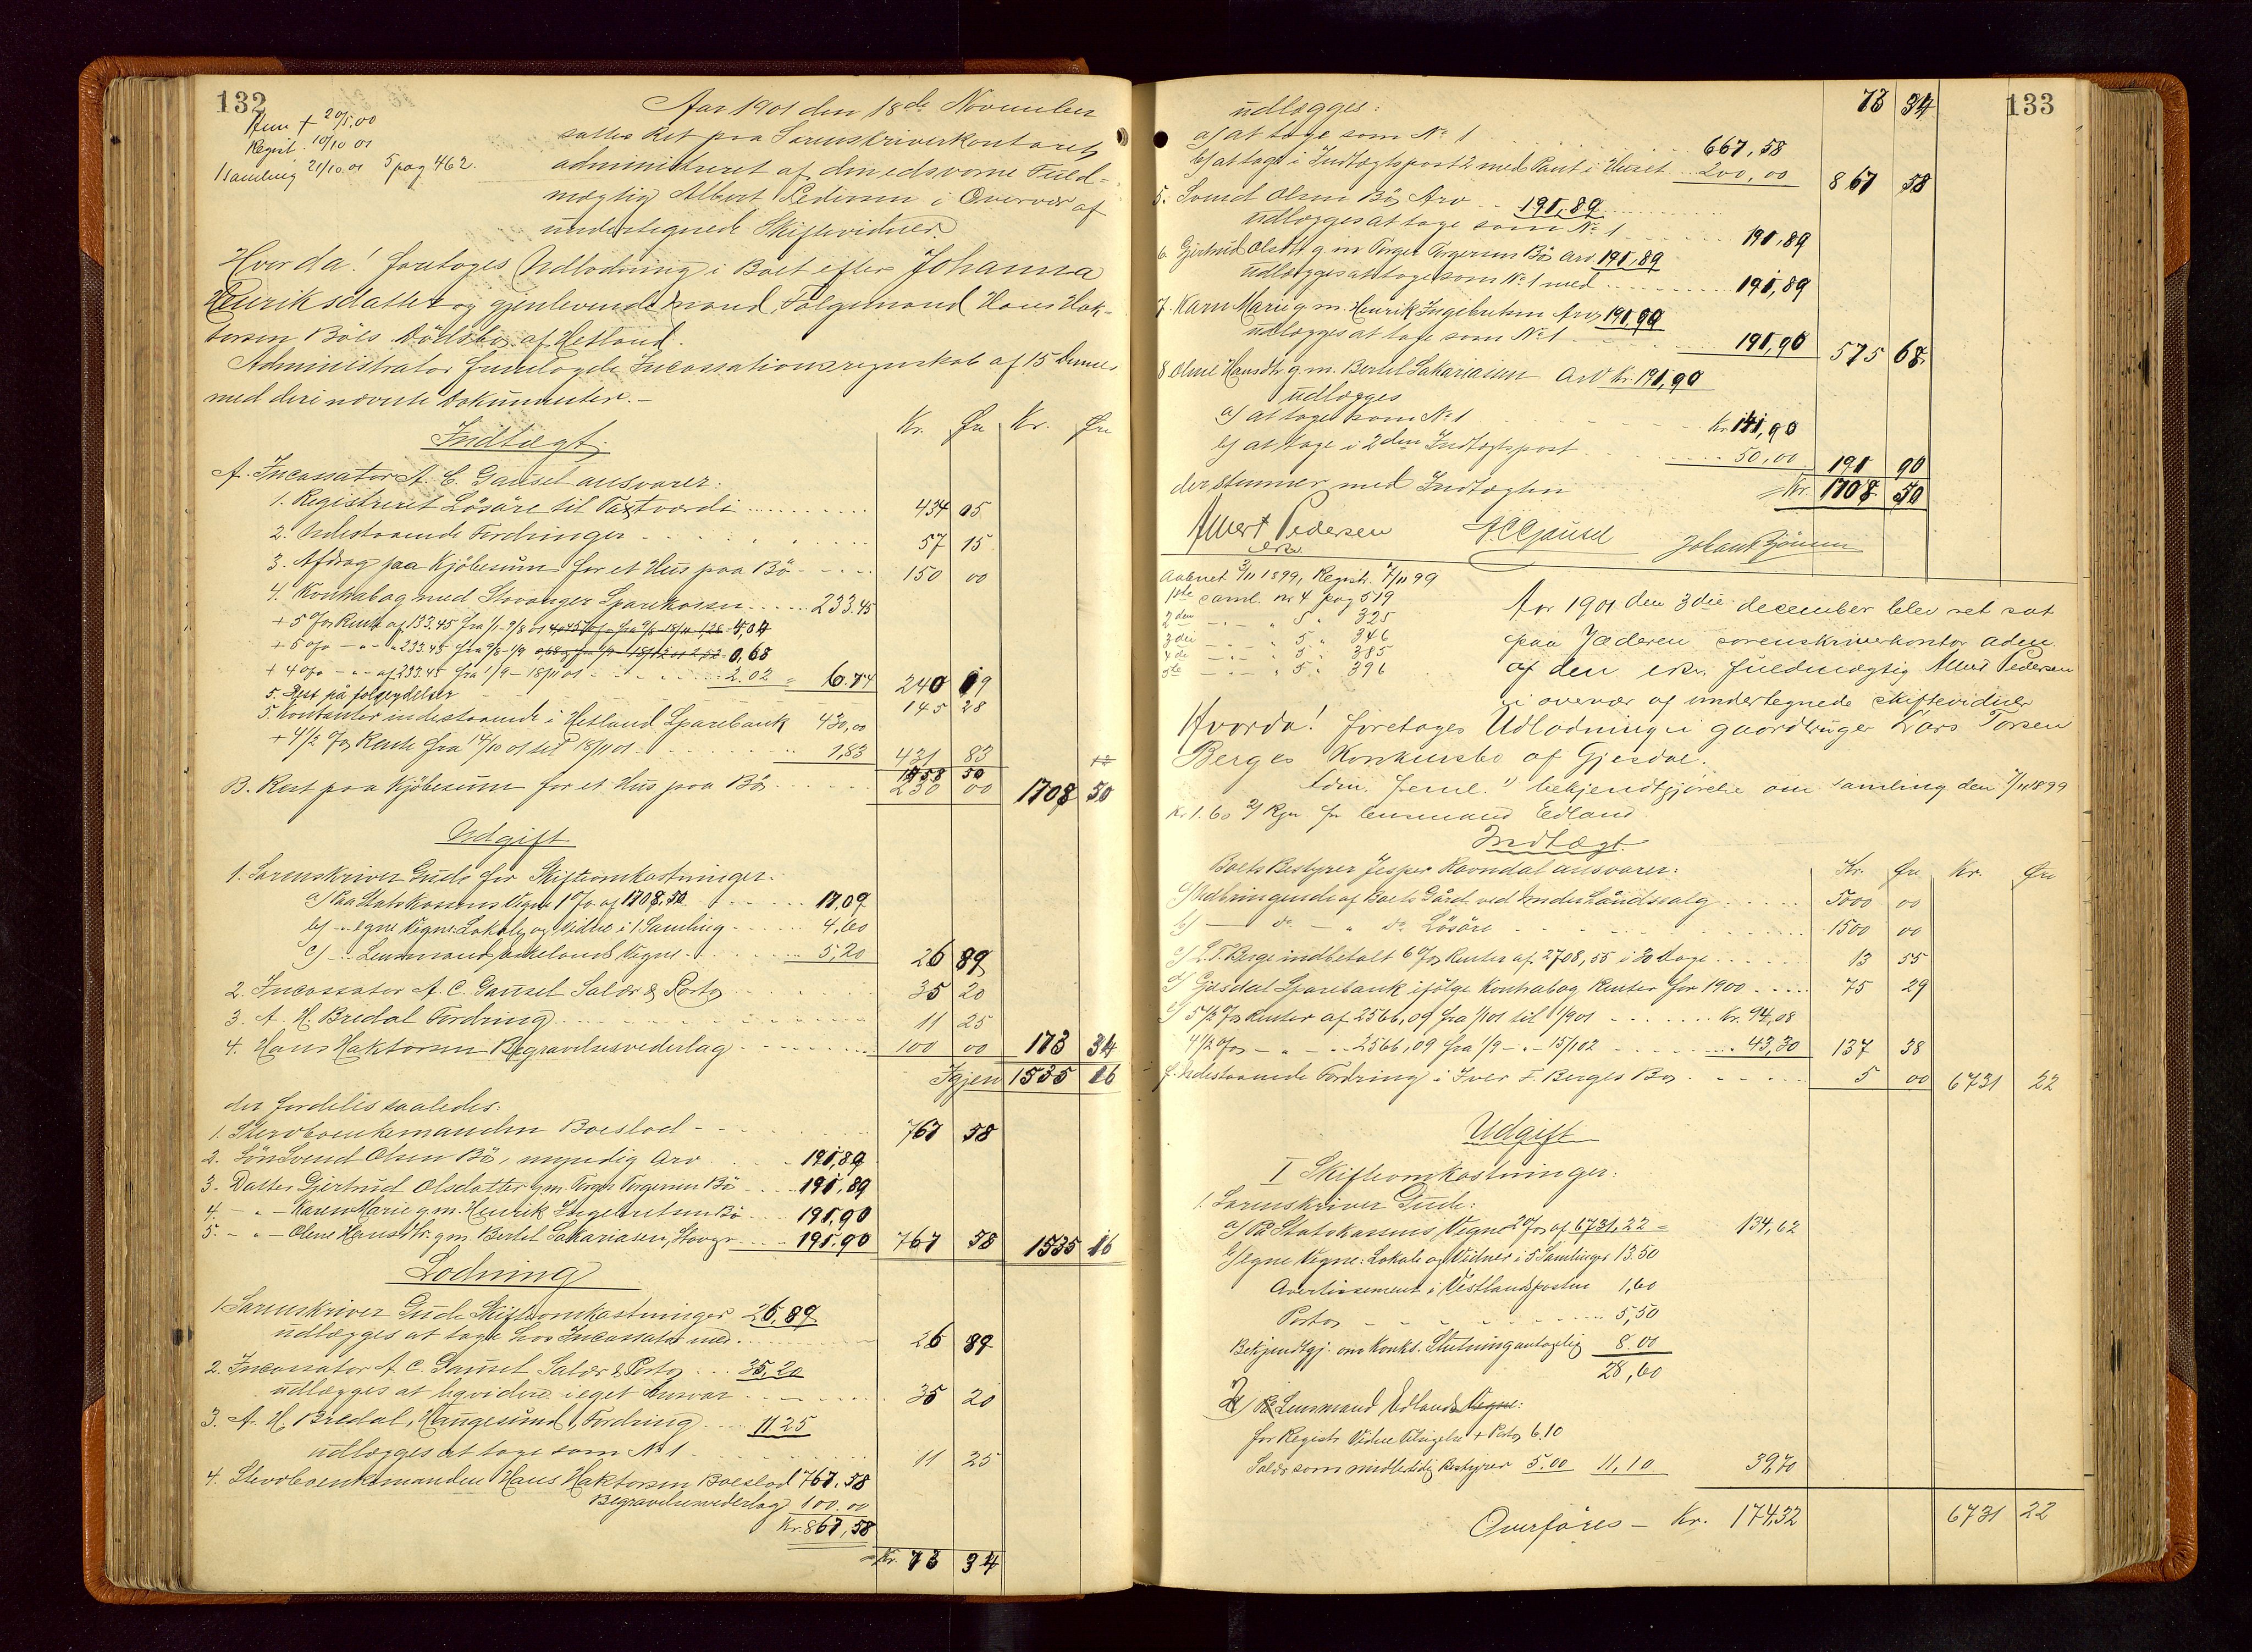 132
Hun + 20/5.00
Regist. 10/10 01
1 Samling 21/10.01 5 pag 462.
Aar 1901 den 18de November
sattes Ret paa Sorenskriverkontoret,
administreret af den edsvorne Fuld-
mægtig Albert Pedersen i Overvær af
undertegnede Skiftevidner
Hvorda! foretoges Udlodning i Boet efter Johanna
Henriksdatter og gjenlevende Mand, Følgemand Hans Hak-
torsen Böes Dödsbo af Hetland.
Administrator fremlagde Incassationsregnskab af 15 Dennes
med deri nævnte Dokumenter. —
Indtægt. Kr. Øre Kr. Øre
A. Incassator A. C. Gausel ansvarer:
1. Registreret Lösöre til Taxtværdi 434 05
2. Udestaaende Fordringer 57 15
3. Afdrag paa Kjöbesum for et Hus paa Bö 150 00
4. Kontrabog med Stavanger Sparekasse 233.45
+ 5 % Rente af 133.45 fra 1/1-9/8 01 4,04
+ 5 % - " - 233.45 fra 9/8-1/9 0,68
+ 4 % - " - af 233.45 fra 1/9-18/11 01 2.02 = 6.74 240 19
5. Rest på folgeydelser 145 28
5. Kontanter indestaaende i Hetland Sparebank 430,00
+ 4 1/2 % Rente fra 14/10 01 til 18/11 01 1,83 431 83
1458 50
B. Rest paa Kjöbesum for et Hus paa Bö 250 00 1708 50
Udgift
1. Sorenskriver Gude for Skifteomkostninger.
a) Paa Statskassens Vegne 1 % af 1708,50 17.09
b) - egne Vegne: Lokale og Vidne i 1 Samling 4.60
c) - Lensmand Vegne 5,20 26 89
2. Incassator A. C. Gausel Salær & Porto 35 20
3. A. H. Bredal Fordring 11 25
4. Hans Haktorsen Begravelsesvederlag 100 00 173 34
Igjen 1535 16
der fordeles saaledes:
1. Stervboenkemanden Boeslod 767 58
2. Sön Svend Olsen Bö, myndig Arv 191,89
3. Datter Gjertrud Olsdatter g. m. Torger Torgersen Bö 191,89
4. - " - Karen Marie g. m. Henrik Ingebretsen Bö 191,90
5. - " - Olene Hansdtr. g. m. Bertel Sakariasen, Stavgr. 191.90 767 58 1535 16
Lodning
1. Sorenskriver Gude Skifteomkostninger 26,89
udlægges at tage hos Incassator med 26 89
2. Incassator A. C. Gausel Salær & Porto 35,20
udlægges at liqvidere i eget Ansvar 35 20
3. A. H. Bredal, Haugesund, Fordring 11 25
udlægges at tage som No 1 11 25
4. Stervboenkemanden Hans Haktorsen Boeslod 767.58
Begravelsesvederlag 100.00
Kr. 867,58
Kr. 73 34
133
73 34
udlægges:
a) at tage som No 1 667,58
b) at tage i Indtægtspost 2 med Pant i Huset 200,00 867 58
5. Svend Olsen Bö, Arv 191,89
udlægges at tage som No 1 191,89
6. Gjertrud Olsdtr. g. m. Torger Torgersen Bö Arv 191,89
udlægges at tage som No 1 med 191,89
7. Karen Marie g. m. Henrik Ingebretsen Arv 191,90
udlægges at tage som No 1 191,90 575 68
8. Olene Hansdtr. g. m. Bertel Sakariassen Arv Kr. 191,90
udlægges
a) at tage som No 1 Kr. 141,90
b) at tage i 2den Indtægtspost 50,00 191 90
der stemmer med Indtægten Kr. 1708 50
Albert Pedersen A. C. Gausel
esv.
Aabnet 3/11 1899, Regist. 7/11 99
1ste saml. nr 4 pag 519
2den - " - " 5 " 325
3die - " - " 5 " 346
4de - " - " 5 " 385
5te - " - " 5 " 396
Aar 1901 den 3die december blev ret sat
paa Jæderen sorenskriverkontor adm.
af den esv. fuldmægtig Albert Pedersen
i overvær af undertegnede skiftevidner
Hvorda! foretoges Udlodning i gaardbruger Lars Torsen
Berges Konkursbo af Gjesdal.
Adm. freml. 1) bekjendtgjørelse om samling den 7/11 1899
Kr 1.60 2) Rgn. fra lensmand Edland
Indtægt.
Boets Bestyrer Jesper Ravndal ansvarer: Kr. Øre Kr. Øre
a) Udbringende af Boets Gård ved Underhåndssalg 5000 00
b) — do — " do Lösöre 1500 00
c) L. T. Berge indbetalt 6 % Renter af 2708,55 i 30 Dage 13 55
d) Gjesdal Sparebank ifölge Kontrabog Renter for 1900 75 29
e) 5 1/2 % Renter af 2566,09 fra 1/1 01 til 1/9 01 Kr. 94,08
4 1/2 % - " - 2566,09 fra 1/9 - " - 15/1 02 43,30 137 38
f. Udestaaende Fordring i Iver T. Berges Bo 5 00 6731 22
Udgift
I Skifteomkostninger:
1. Sorenskriver Gude:
a) På Statskassens Vegne 2 % af 6731,22 = 134,62
b) egne Vegne: Lokale og Vidner i 5 Samlinger 13.50
Avertissement i Vestlandsposten 1,60
Porto 5,50
Bekjendtgj. om Konks. Slutning antagelig 8.00
28,60
2) Lensmand Edland Vegne:
for Registr. Vidne Tilsigelse + Porto 6.10
Salær som midlertidig Bestyrer 5.00 11,10 39,70
Overføres — Kr. 174,32 6731 22